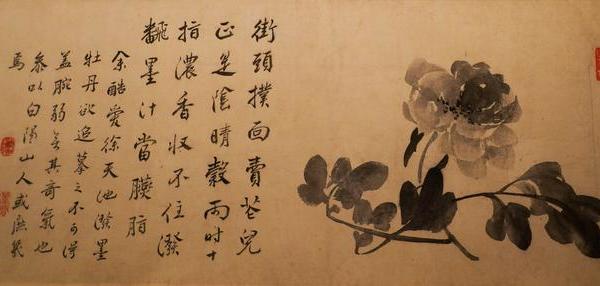 街頭撲面賣花兒
正是陰晴穀雨時十
指濃香收不住潑
翻墨汁當臙脂
余酷愛徐天池潑墨
牡丹欲追摹之不可得
蓋腕弱無其奇氣也
參以白陽山人或庶幾
焉